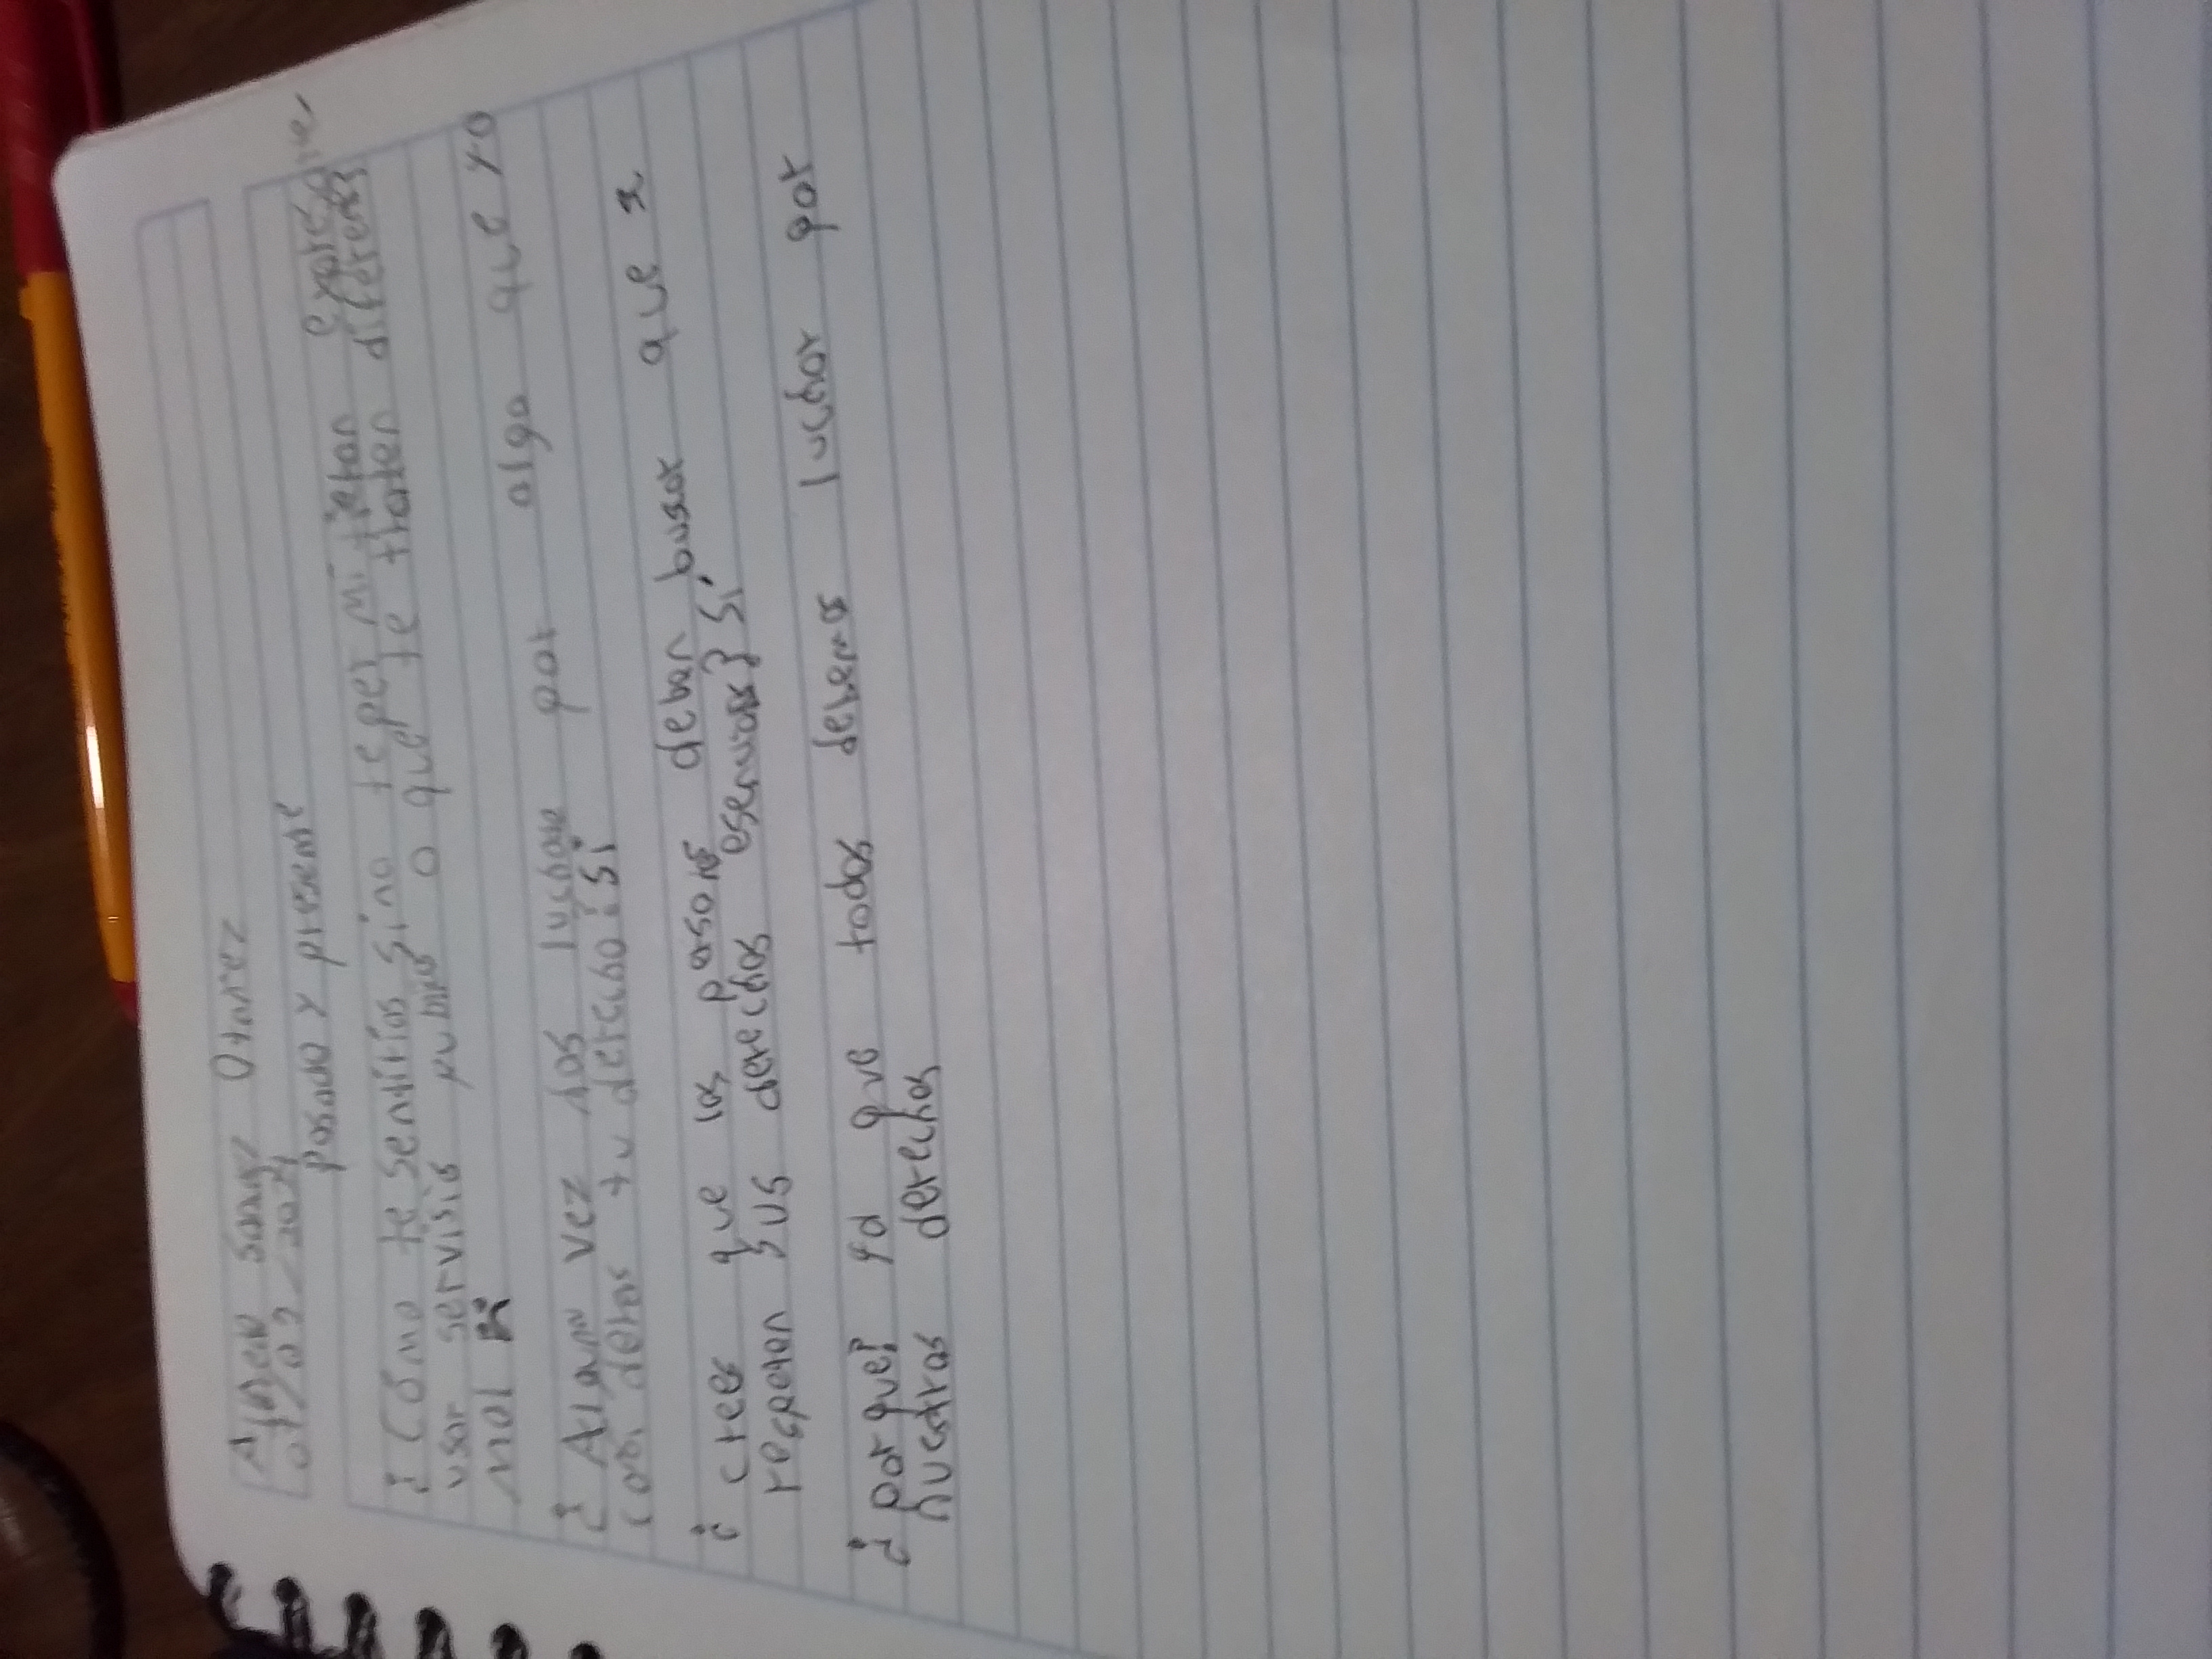 Sanay Otañez
07/09/2021
pasado y presente
¿Cómo te sentirías sino te per mi tieran expresarte
usar servisio publico o que te traten diferente
mal
¿Alguna vez has luchado por algo que yo
con deras tu derecho? Si
¿crees que las pasores deban busar que s
respetan sus derechos Si
¿por que? ya que todos debemos luchar por
nuestros derechos